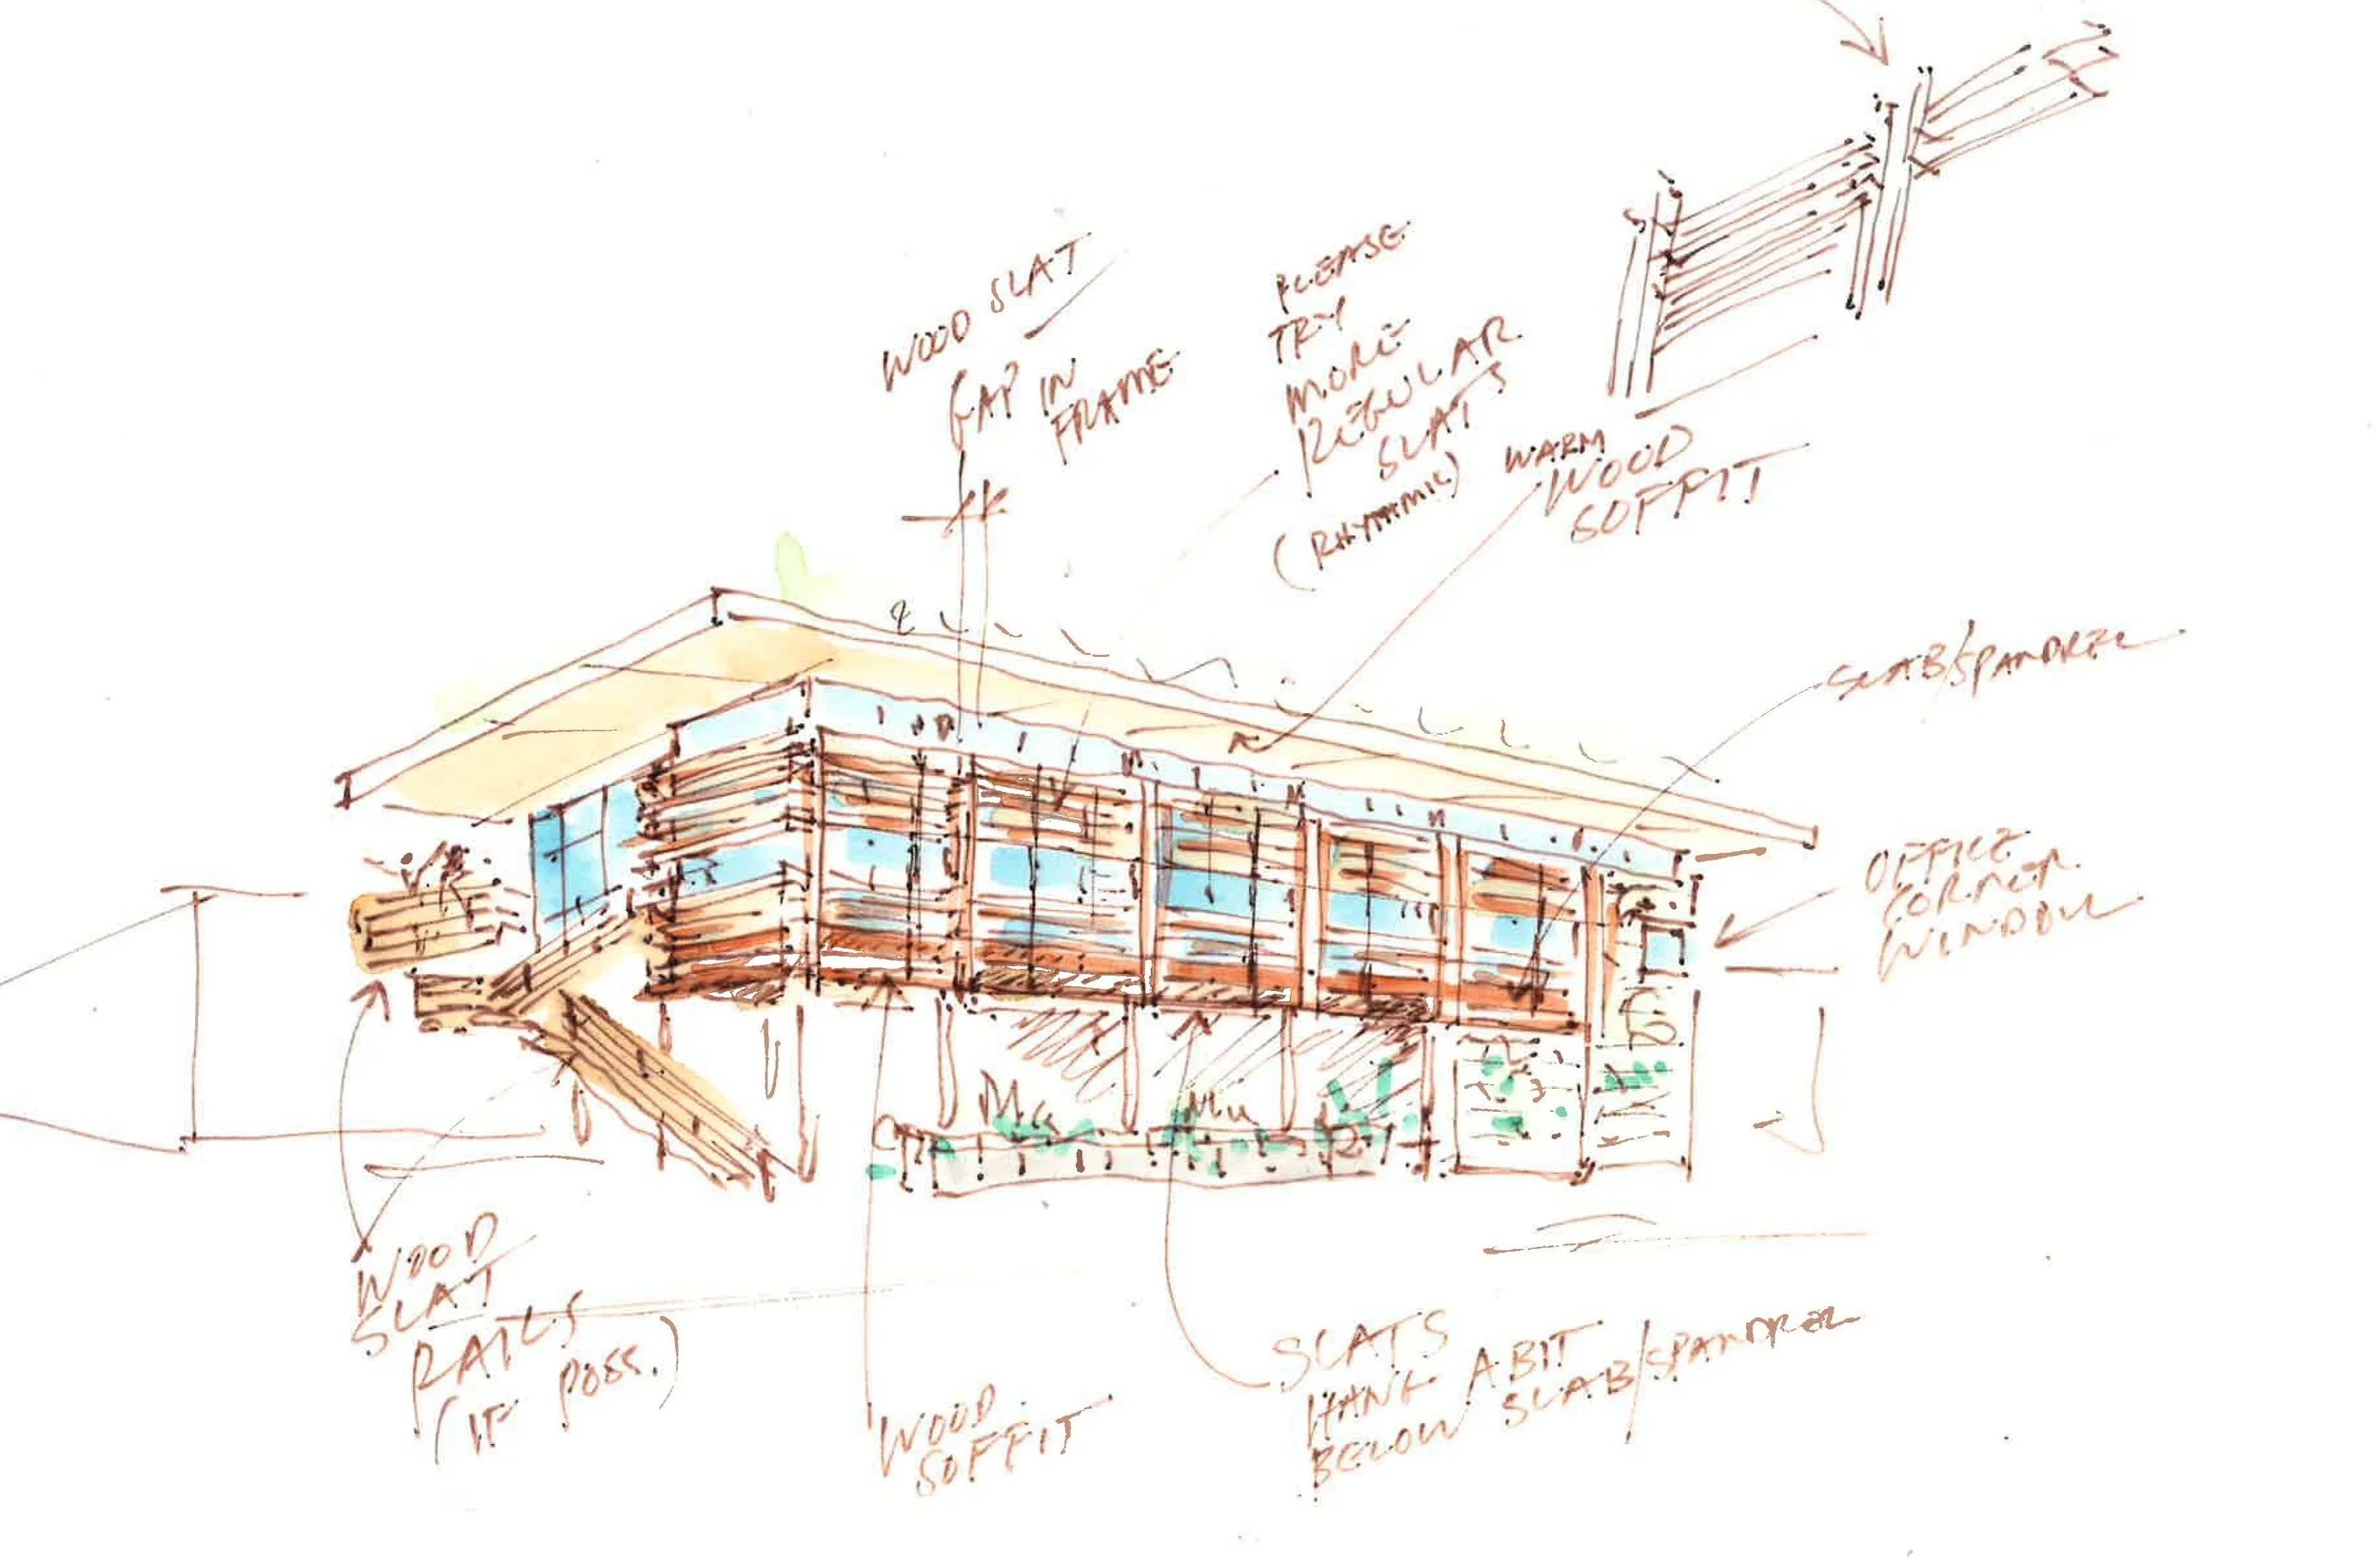 WOOD SLAT
GAP IN
FRAME
PLEASE
TRY
MORE
REGULAR
SLATS
(RHYTHMIC)
WARM
WOOD
SOFFIT
SLAB/SPANDREL
OFFICE
CORNER
WINDOW
WOOD
SLAT
RAILS
(IF POSS.)
WOOD
SOFFIT
SLATS
HANG A BIT
BELOW SLAB/SPANDREL